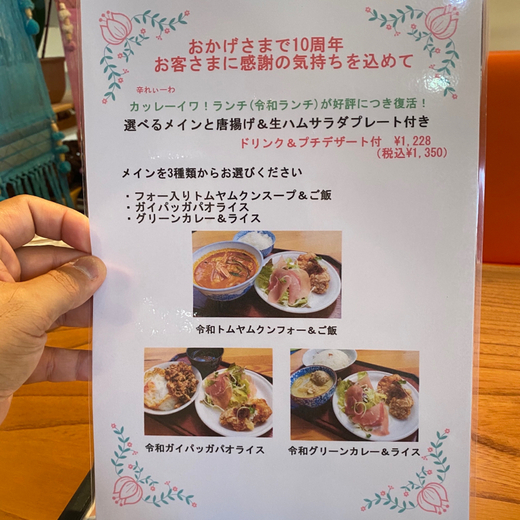 おかげさまで10周年
お客さまに感謝の気持ちを込めて
辛れぃーわ
カッレーイワ！ランチ(令和ランチ)が好評につき復活！
選べるメインと唐揚げ＆生ハムサラダプレート付き
ドリンク＆プチデザート付 ¥1,228
(税込¥1,350)
メインを3種類からお選びください
・フォー入りトムヤムクンスープ＆ご飯
・ガイパッガパオライス
・グリーンカレー＆ライス
令和トムヤムクンフォー＆ご飯
令和ガイパッガパオライス
令和グリーンカレー＆ライス